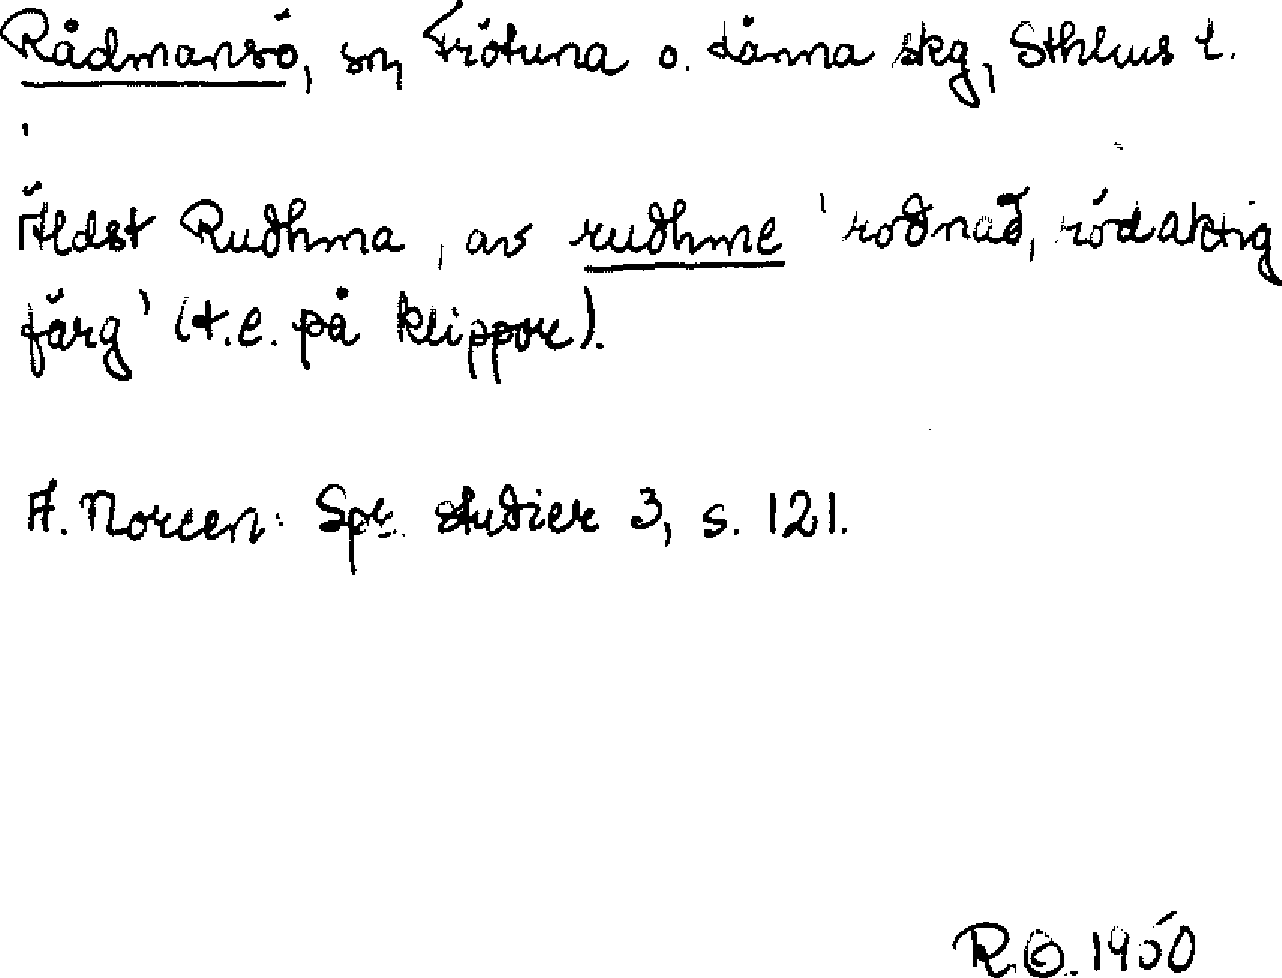 Rådmansö, sn, Frötuna o. Länna skg, Sthlms l.
Äldst Ruðhma, av ruðhme 'roðnað, rödaktig
färg' (t.e. på klippor).
A. Noreen: Spr. studier 3, s. 121.
R.O. 1950